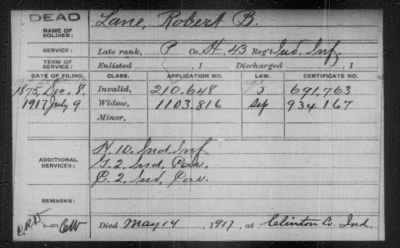 DEAD
NAME OF SOLDIER: Lane, Robert B.
SERVICE: Late rank, P Co. H, 43 Reg't Ind. Inf.
TERM OF SERVICE: Enlisted , 1 Discharged , 1
DATE OF FILING. CLASS. APPLICATION NO. LAW. CERTIFICATE NO.
1875, Dec. 8. Invalid, 210.648 691,763
1917 July 9 Widow, 1103.816 Sep 934.167
Minor,
ADDITIONAL SERVICES:
H. 10. Ind. Inf
G. 2 Ind, Cav.
C. 2 Ind, Cav.
REMARKS:
Died May 14, 1917, at Clinton Co. Ind.